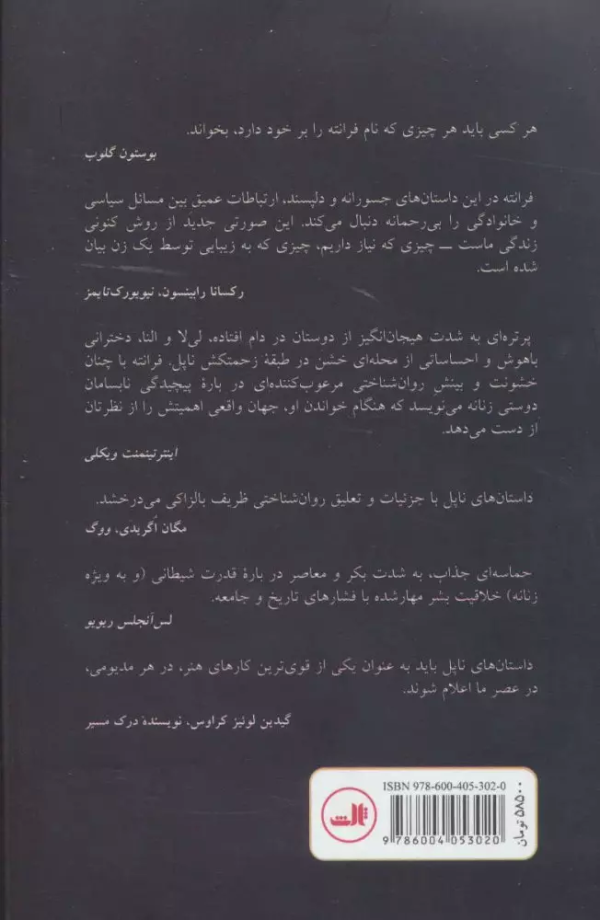 هر کسی باید هر چیزی که نام فرانته را بر خود دارد، بخواند.
بوستون گلوب
فرانته در این داستان‌های جسورانه و دلپسند، ارتباطات عمیق بین مسائل سیاسی
و خانوادگی را بی‌رحمانه دنبال می‌کند. این صورتی جدید از روش کنونی
زندگی ماست ـــ چیزی که نیاز داریم، چیزی که به زیبایی توسط یک زن بیان
شده است.
رکسانا رابینسون، نیویورک‌تایمز
پرتره‌ای به شدت هیجان‌انگیز از دوستان در دام افتاده، لی‌لا و النا، دخترانی
باهوش و احساساتی از محله‌ای خشن در طبقهٔ زحمتکش ناپل. فرانته با چنان
خشونت و بینش روان‌شناختی مرعوب‌کننده‌ای در بارهٔ پیچیدگی نابسامان
دوستی زنانه می‌نویسد که هنگام خواندن او، جهان واقعی اهمیتش را از نظرتان
از دست می‌دهد.
اینترتینمنت ویکلی
داستان‌های ناپل با جزئیات و تعلیق روان‌شناختی ظریف بالزاکی می‌درخشد.
مگان اُگریدی، ووگ
حماسه‌ای جذاب، به شدت بکر و معاصر در بارهٔ قدرت شیطانی (و به ویژه
زنانه) خلاقیت بشر مهارشده با فشارهای تاریخ و جامعه.
لس‌آنجلس ریویو
داستان‌های ناپل باید به عنوان یکی از قوی‌ترین کارهای هنر، در هر مدیومی،
در عصر ما اعلام شوند.
گیدین لوئیز کراوس، نویسندهٔ درک مسیر
ISBN 978-600-405-302-0
9 786004 053020
۵۸۵۰۰ تومان
ثالث